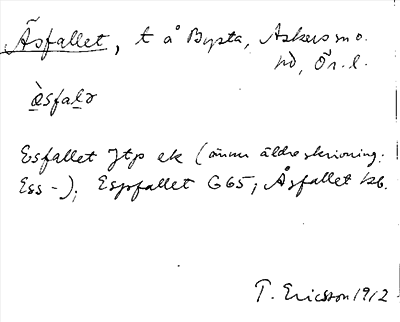 Äsfallet, t å Bysta, Askers sn o.
hd, Ör. l.
æ̀sfalə
Esfallet Jtp ek (ännu äldre skrivning:
Ess-); Espfallet G65; Åsfallet kb.
T. Ericsson 1912